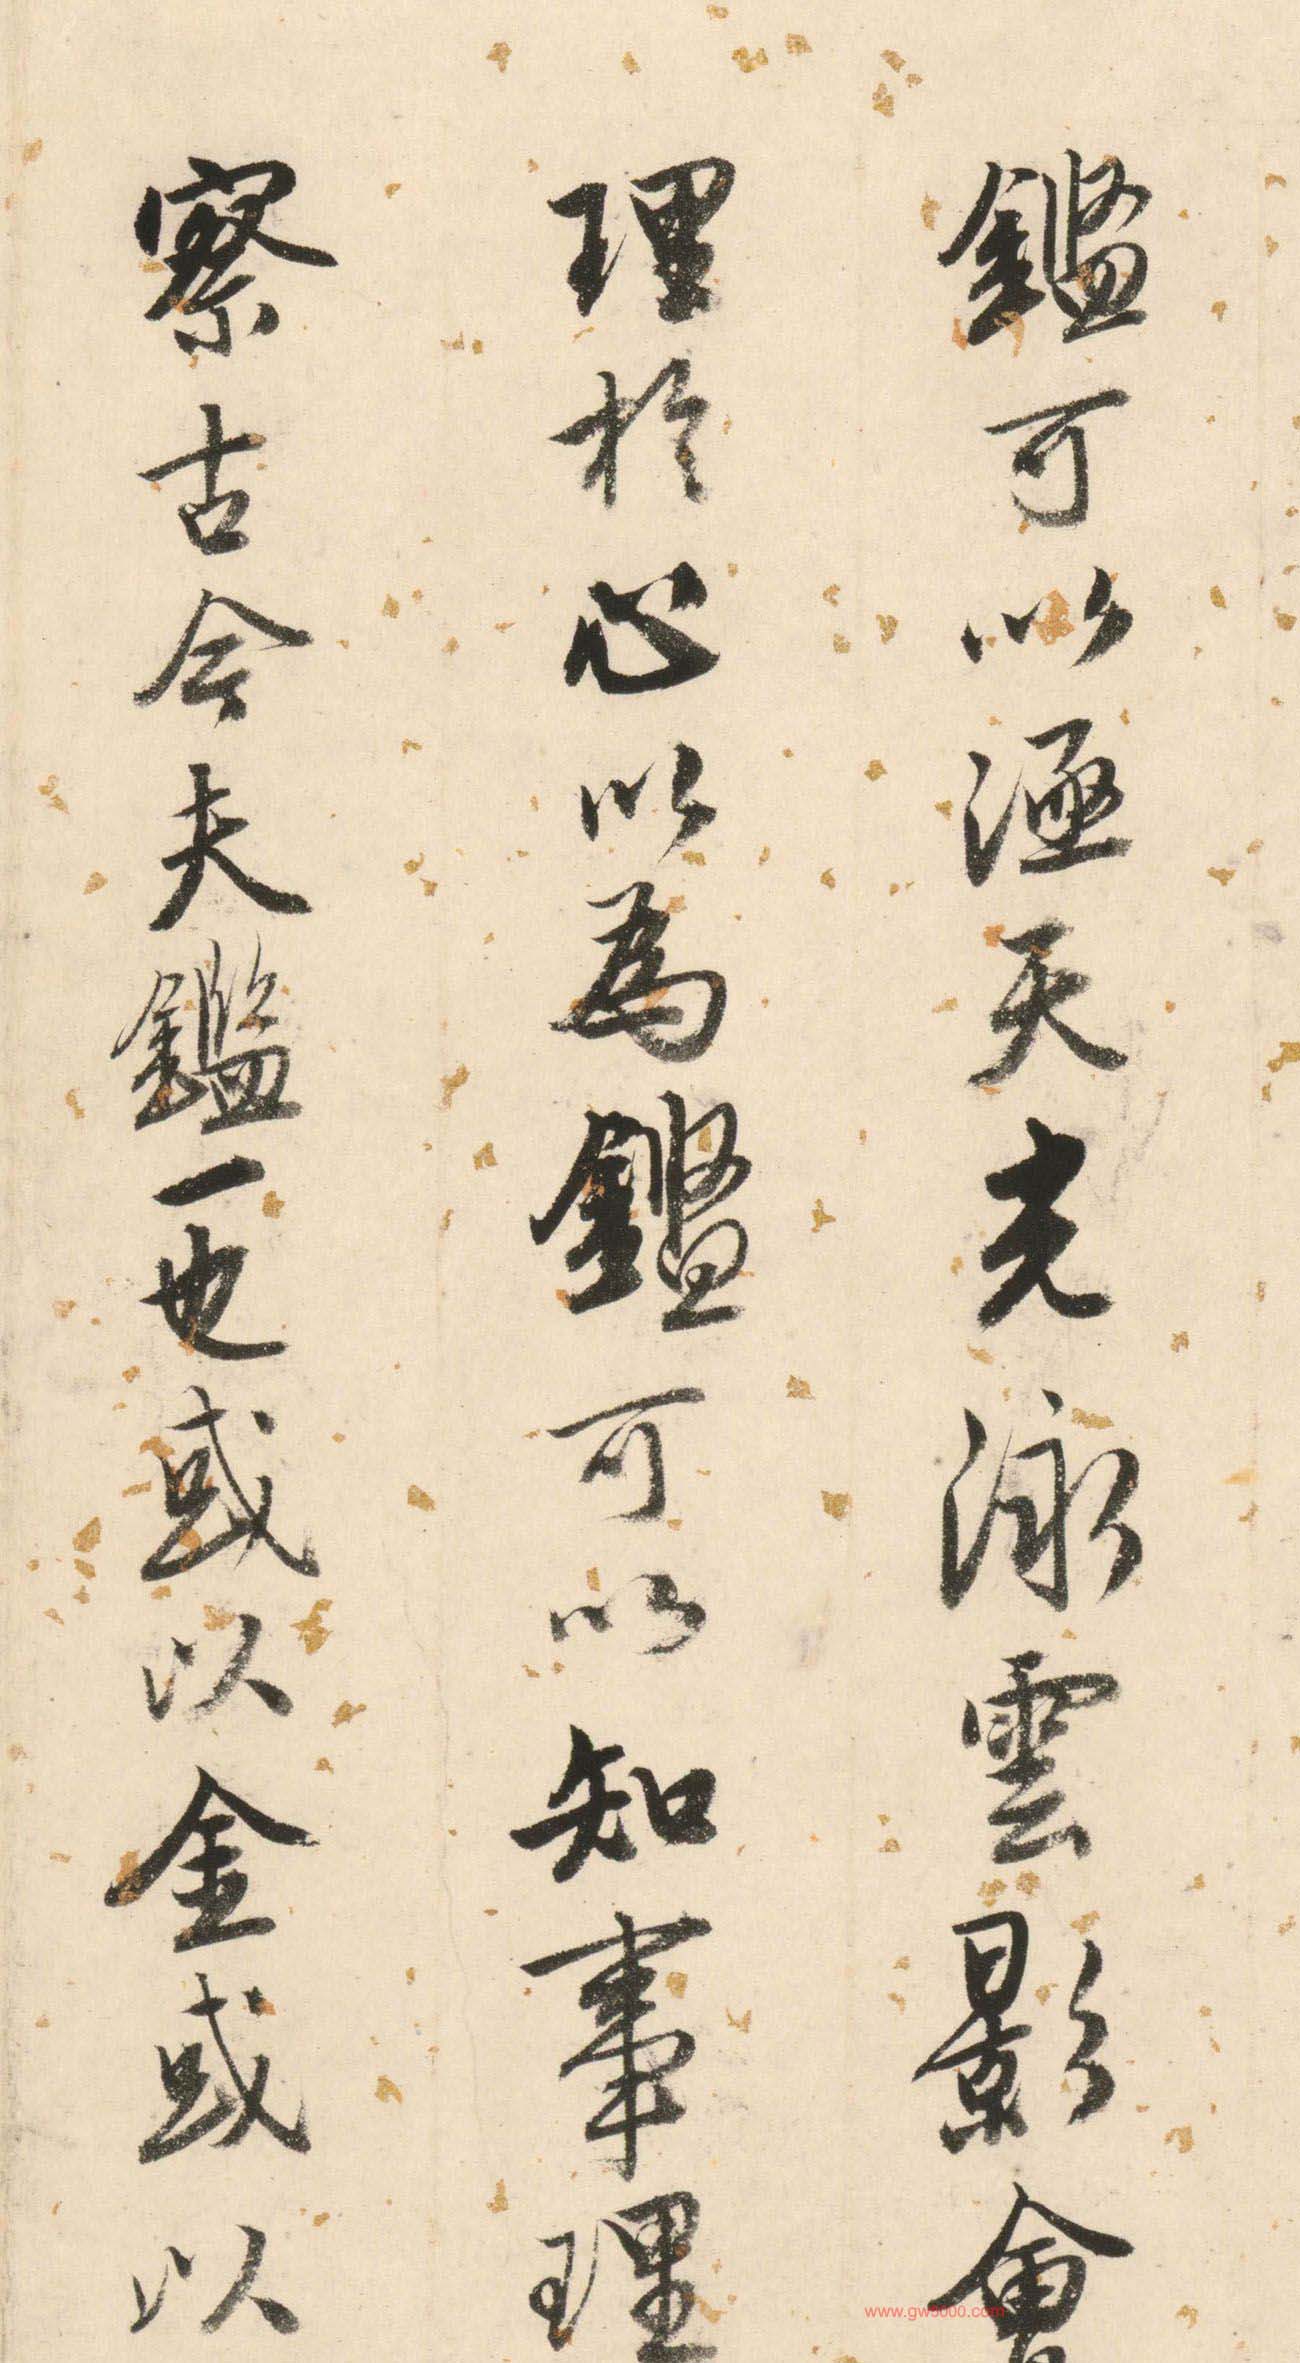 鑑可以涵天光泳雲影會
理於心以為鑑可以知事理
察古今夫鑑一也或以金或以
www.gw5000.com